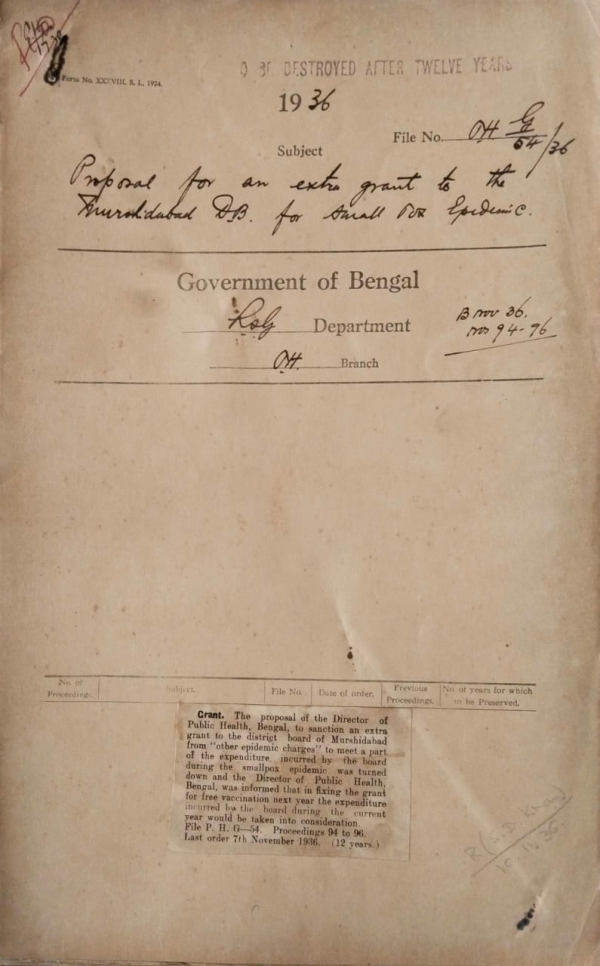 Form No. XXXVIII, S. I., 1924.
O BE DESTROYED AFTER TWELVE YEARS
1936
File No. PH G/54/36
Subject
Proposal for an extra grant to the
Murshidabad D.B. for Small Pox Epidemic.
Government of Bengal
LSG Department
B Nov 36.
nos 94-96
PH. Branch
No. of Proceedings.
Subject.
File No.
Date of order.
Previous Proceedings.
No. of years for which to be Preserved.
Grant. The proposal of the Director of
Public Health, Bengal, to sanction an extra
grant to the district board of Murshidabad
from "other epidemic charges" to meet a part
of the expenditure incurred by the board
during the smallpox epidemic was turned
down and the Director of Public Health,
Bengal, was informed that in fixing the grant
for free vaccination next year the expenditure
incurred by the board during the current
year would be taken into consideration.
File P. H. G—54. Proceedings 94 to 96.
Last order 7th November 1936. (12 years.)